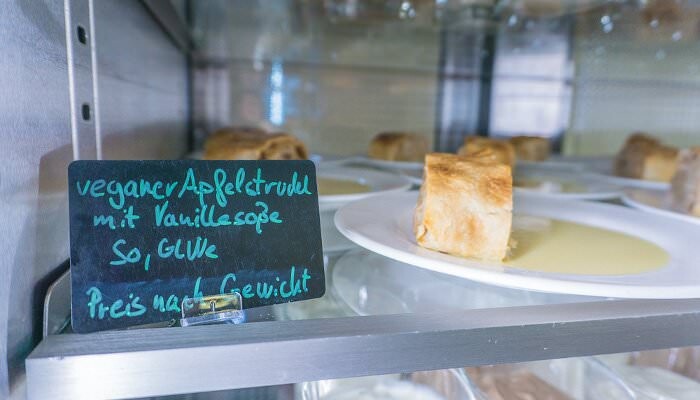 veganer Apfelstrudel
mit Vanillesoße
So, GlWe
Preis nach Gewicht